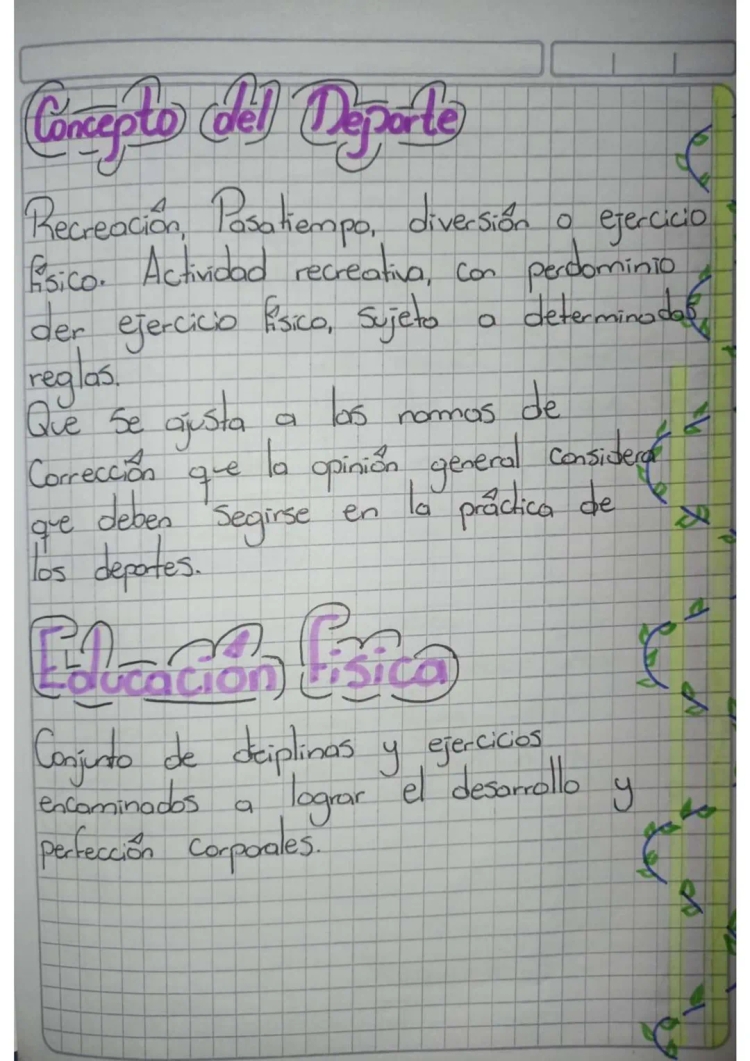 Concepto del Deporte
Recreación, Pasatiempo, diversión o ejercicio
físico. Actividad recreativa, con perdominio
der ejercicio físico, sujeto a determinadas
reglas.
Que se ajusta a las normas de
Corrección que la opinión general considera
que deben segirse en la práctica de
los deportes.
Educación Física
Conjunto de diciplinas y ejercicios
encaminados a lograr el desarrollo y
perfección corporales.